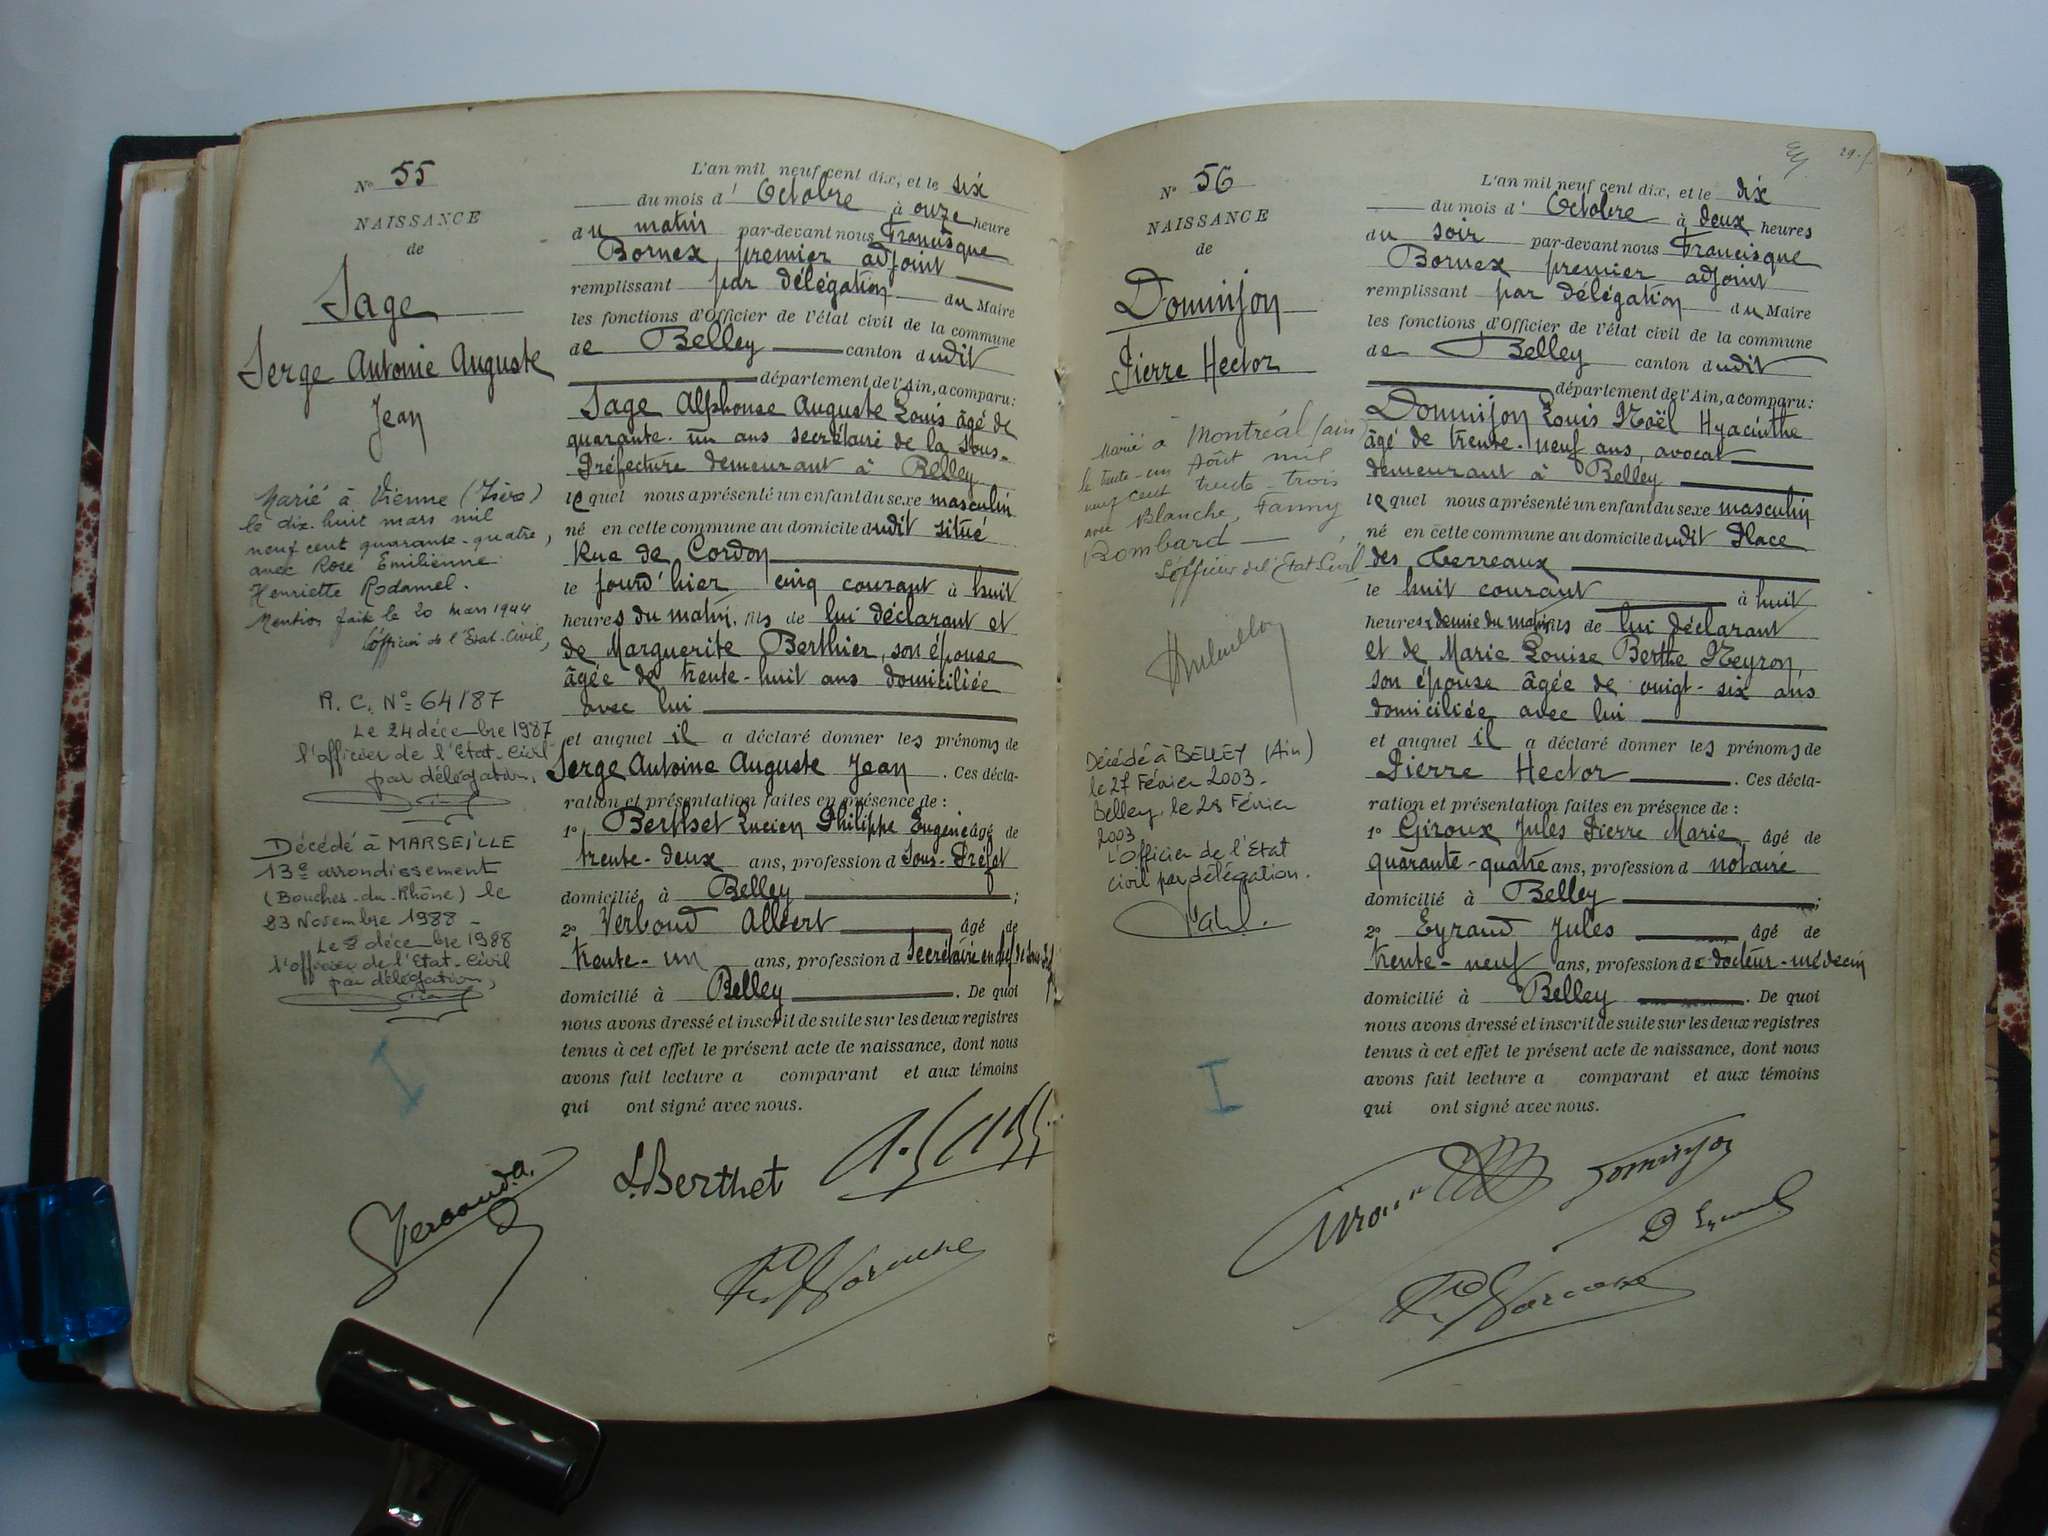 N° 55
NAISSANCE
de
Sage
Serge Antoine Auguste
Jean
Marié à Vienne (Isère)
le dix-huit mars mil
neuf cent quarante-quatre,
avec Rose Emilienne
Henriette Rodamel.
Mention faite le 20 mars 1944
L'officier de l'Etat-Civil,
R.C. N° 64/87
Le 24 décembre 1987
l'officier de l'Etat-Civil
par délégation,
Décédé à MARSEILLE
13e arrondissement
(Bouches-du-Rhône) le
23 Novembre 1988 -
Le 8 décembre 1988
l'officier de l'Etat-Civil
par délégation,
I
L'an mil neuf cent dix, et le six
du mois d'Octobre à onze heure
du matin par-devant nous Francisque
Bornex, premier adjoint
remplissant par délégation du Maire
les fonctions d'Officier de l'état civil de la commune
de Belley canton dudit
département de l'Ain, a comparu:
Sage Alphonse Auguste Louis âgé de
quarante-un ans secrétaire de la Sous-
Préfecture demeurant à Belley
lequel nous a présenté un enfant du sexe masculin
né en cette commune au domicile dudit situé
Rue de Cordon
le jourd'hier cinq courant à huit
heures du matin, fils de lui déclarant et
de Marguerite Berthier, son épouse
âgée de trente-huit ans domiciliée
avec lui
et auquel il a déclaré donner les prénoms de
Serge Antoine Auguste Jean. Ces décla-
ration et présentation faites en présence de :
1° Berthet Lucien Philippe Eugène âgé de
trente-deux ans, profession d Sous-Préfet
domicilié à Belley ;
2° Verboud Albert âgé de
trente-un ans, profession d Secrétaire en chef de
domicilié à Belley. De quoi
nous avons dressé et inscrit de suite sur les deux registres
tenus à cet effet le présent acte de naissance, dont nous
avons fait lecture a comparant et aux témoins
qui ont signé avec nous.
L. Berthet
N° 56
NAISSANCE
de
Dominjon
Pierre Hector
Marié à Montréal (ain)
le trente-un Août mil
neuf cent trente-trois
avec Blanche, Fanny
Bombard
L'officier de l'Etat Civil
Décédé à BELLEY (Ain)
le 27 Février 2003 -
Belley, le 28 Février
2003
L'Officier de l'Etat
Civil par délégation.
I
29
L'an mil neuf cent dix, et le dix
du mois d'Octobre à deux heures
du soir par-devant nous Francisque
Bornex premier adjoint
remplissant par délégation du Maire
les fonctions d'Officier de l'état civil de la commune
de Belley canton dudit
département de l'Ain, a comparu:
Dominjon Louis Noël Hyacinthe
âgé de trente-neuf ans, avocat
demeurant à Belley
lequel nous a présenté un enfant du sexe masculin
né en cette commune au domicile dudit Place
des Terreaux
le huit courant à huit
heures & demie du matin fils de lui déclarant
et de Marie Louise Berthe Neyron,
son épouse âgée de vingt-six ans
domiciliée avec lui
et auquel il a déclaré donner les prénoms de
Pierre Hector. Ces décla-
ration et présentation faites en présence de :
1° Giroux Jules Pierre Marie âgé de
quarante-quatre ans, profession d notaire
domicilié à Belley ;
2° Eyraud Jules âgé de
trente-neuf ans, profession de docteur-médecin
domicilié à Belley. De quoi
nous avons dressé et inscrit de suite sur les deux registres
tenus à cet effet le présent acte de naissance, dont nous
avons fait lecture a comparant et aux témoins
qui ont signé avec nous.
Dominjon